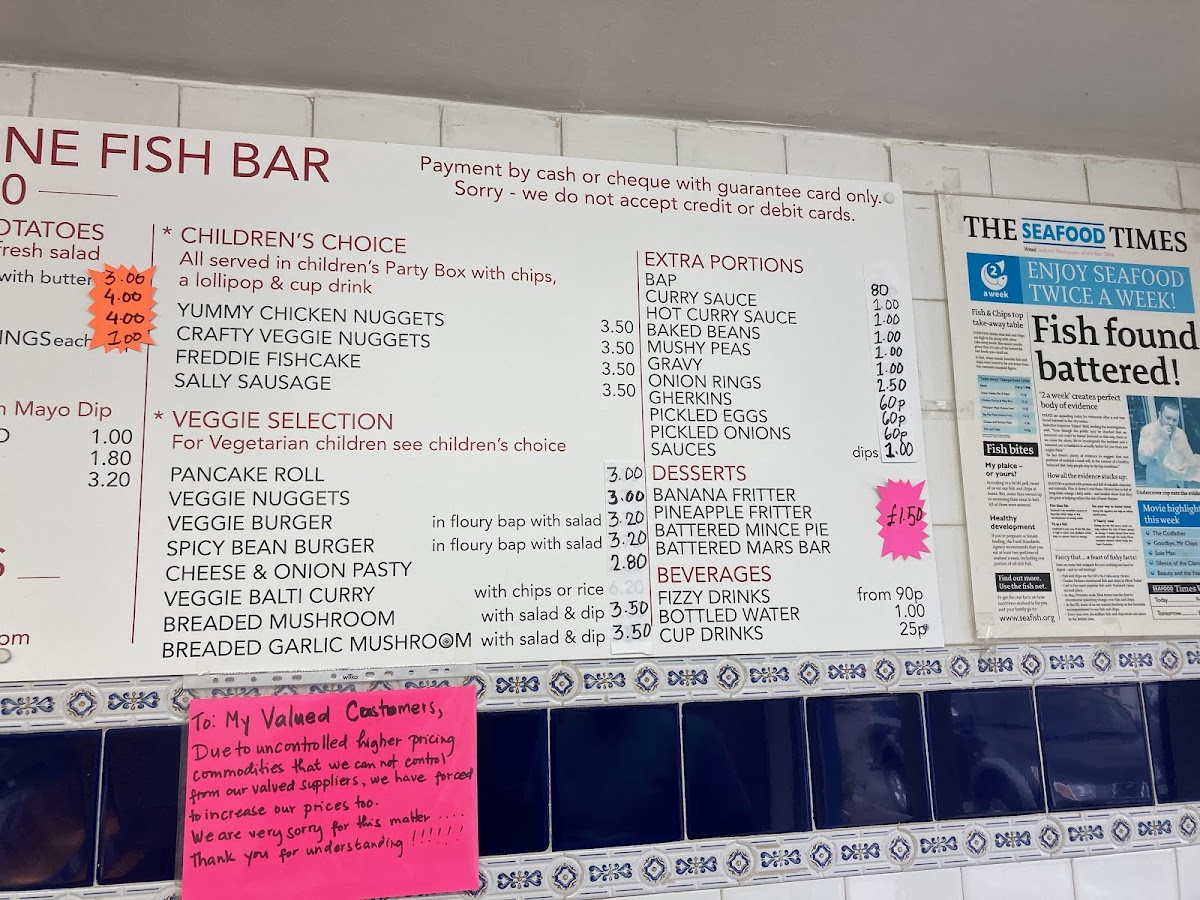 NE FISH BAR
Payment by cash or cheque with guarantee card only.
Sorry - we do not accept credit or debit cards.
0
OTATOES
fresh salad
with butter 3.00
4.00
4.00
INGS each 1.00
n Mayo Dip
1.00
1.80
3.20
S
om
* CHILDREN'S CHOICE
All served in children's Party Box with chips,
a lollipop & cup drink
YUMMY CHICKEN NUGGETS 3.50
CRAFTY VEGGIE NUGGETS 3.50
FREDDIE FISHCAKE 3.50
SALLY SAUSAGE 3.50
* VEGGIE SELECTION
For Vegetarian children see children's choice
PANCAKE ROLL 3.00
VEGGIE NUGGETS 3.00
VEGGIE BURGER in floury bap with salad 3.20
SPICY BEAN BURGER in floury bap with salad 3.20
CHEESE & ONION PASTY 2.80
VEGGIE BALTI CURRY with chips or rice 6.20
BREADED MUSHROOM with salad & dip 3.50
BREADED GARLIC MUSHROOM with salad & dip 3.50
EXTRA PORTIONS
BAP 80
CURRY SAUCE 1.00
HOT CURRY SAUCE 1.00
BAKED BEANS 1.00
MUSHY PEAS 1.00
GRAVY 1.00
ONION RINGS 2.50
GHERKINS 60p
PICKLED EGGS 60p
PICKLED ONIONS 60p
SAUCES dips 1.00
DESSERTS
BANANA FRITTER
PINEAPPLE FRITTER
BATTERED MINCE PIE
BATTERED MARS BAR
£1.50
BEVERAGES
FIZZY DRINKS from 90p
BOTTLED WATER 1.00
CUP DRINKS 25p
wilko
To: My Valued Customers,
Due to uncontrolled higher pricing
commodities that we can not control
from our valued suppliers, we have forced
to increase our prices too.
We are very sorry for this matter ....
Thank you for understanding !!!!!!
THE SEAFOOD TIMES
2 a week
ENJOY SEAFOOD
TWICE A WEEK!
Fish & Chips top
take-away table
Fish found
battered!
'2 a week' creates perfect
body of evidence
How all the evidence stacks up:
Fish bites
My plaice –
or yours?
Healthy
development
Find out more.
Use the fish net.
www.seafish.org
Fancy that... a feast of fishy facts!
Undercover cop eats the evide
Movie highligh
this week
The Codfather
Goodbye, Mr Chips
Sole Man
Silence of the Clam
Beauty and the Fea
SEAFOOD Times
Today
Tomorrow